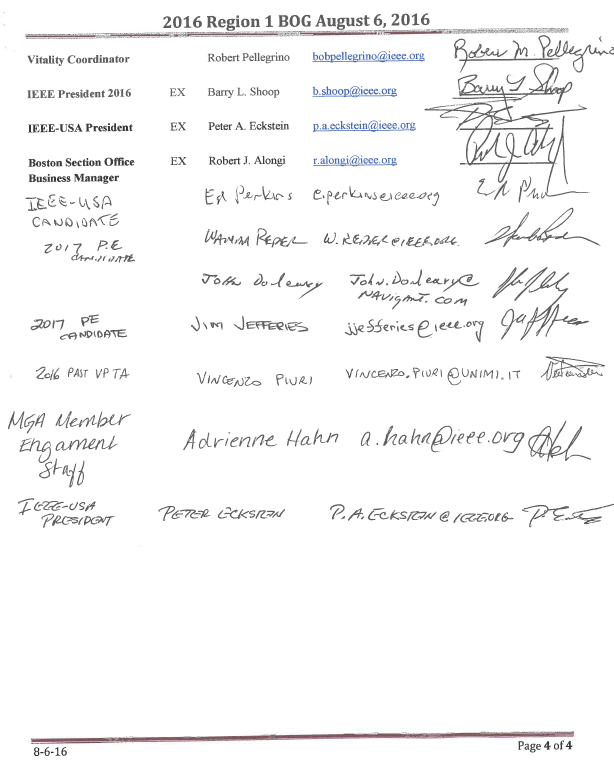 2016 Region 1 BOG August 6, 2016
Vitality Coordinator Robert Pellegrino bobpellegrino@ieee.org Robert M. Pellegrino
IEEE President 2016 EX Barry L. Shoop b.shoop@ieee.org Barry L Shoop
IEEE-USA President EX Peter A. Eckstein p.a.eckstein@ieee.org
Boston Section Office EX Robert J. Alongi r.alongi@ieee.org
Business Manager
IEEE-USA
CANDIDATE Ed Perkins e.perkins@ieee.org
2017 P.E
CANDIDATE WANDA REDER W.REDER@IEEE.ORG.
John Donleavy John.Donleavy@
NAVIGANT.COM
2017 PE
CANDIDATE JIM JEFFERIES jjefferies@ieee.org
2016 PAST VP TA VINCENZO PIURI VINCENZO.PIURI@UNIMI.IT
MGA Member
Engament
Staff Adrienne Hahn a.hahn@ieee.org
IEEE-USA
PRESIDENT PETER ECKSTEIN P.A.ECKSTEIN@IEEE.ORG
8-6-16 Page 4 of 4